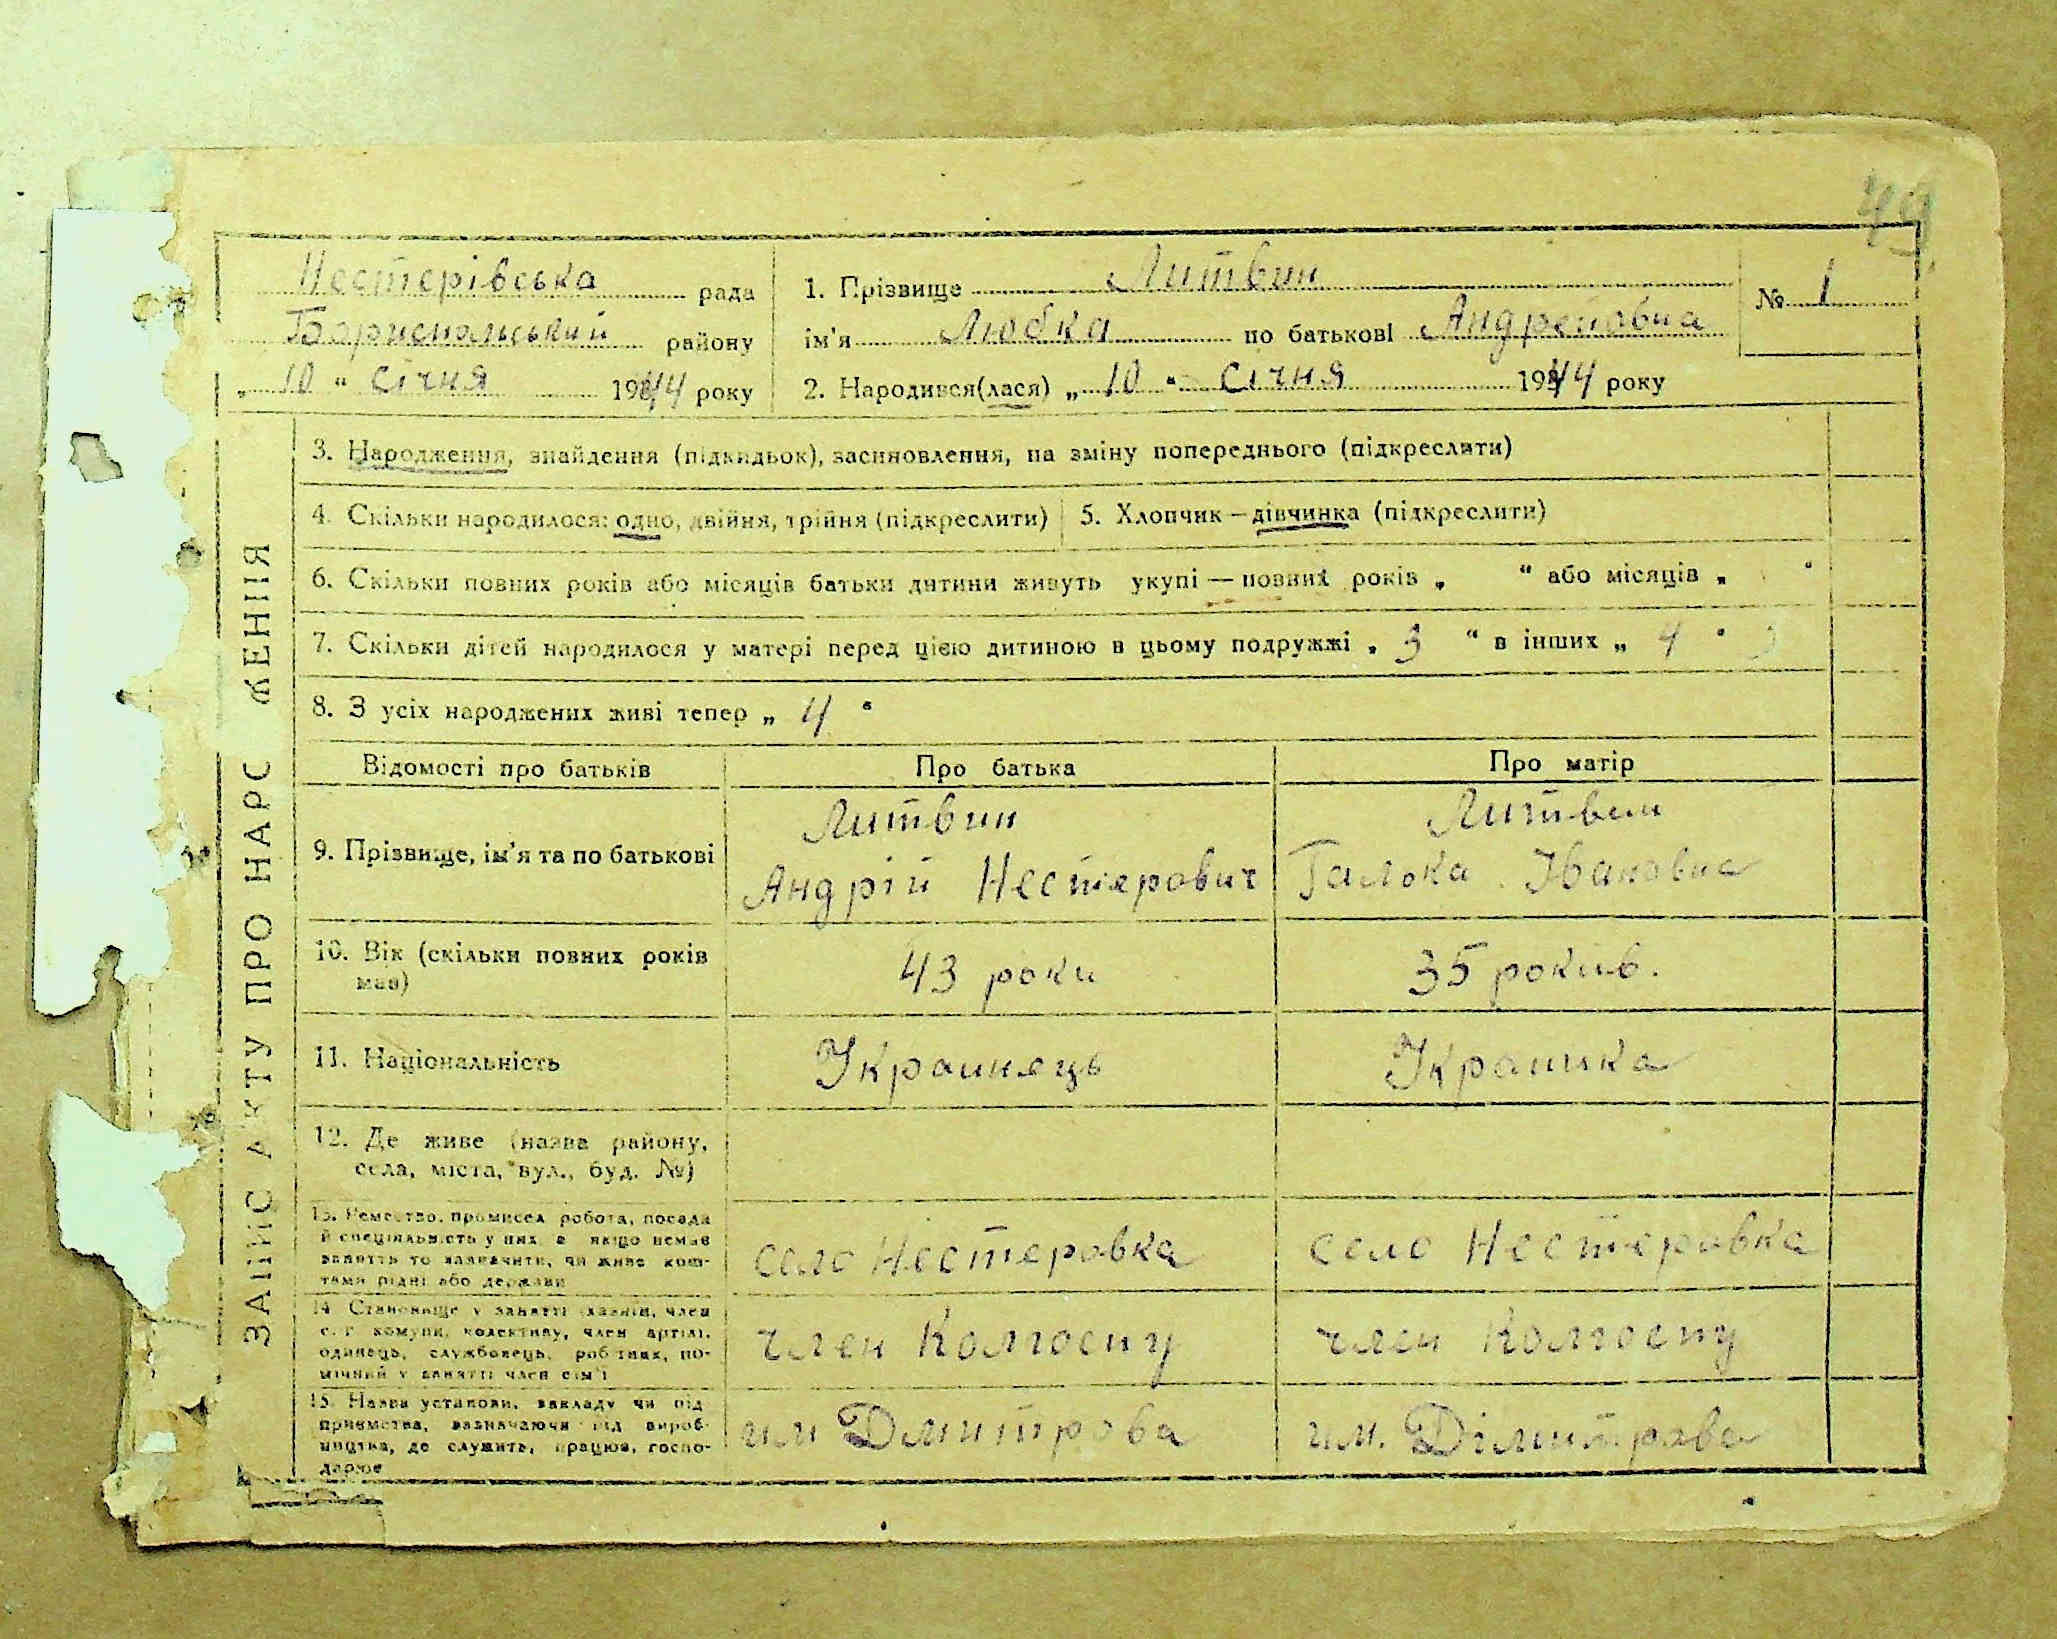 49
Нестерівська рада
Бориспольський району
„ 10 “ січня 1944 року
1. Прізвище Литвин
ім'я Любка по батькові Андрейовна
№ 1
2. Народився(лася) „ 10 “ січня 1944 року
ЗАПИС АКТУ ПРО НАРО ЖЕННЯ
3. Народження, знайдення (підкидьок), засиновлення, на зміну попереднього (підкреслити)
4. Скільки народилося: одно, двійня, трійня (підкреслити)
5. Хлопчик — дівчинка (підкреслити)
6. Скільки повних років або місяців батьки дитини живуть укупі — повних років „ “ або місяців „ “
7. Скільки дітей народилося у матері перед цією дитиною в цьому подружжі „ 3 “ в інших „ 4 “
8. З усіх народжених живі тепер „ 4 “
Відомості про батьків Про батька Про матір
9. Прізвище, ім'я та по батькові
Литвин
Андрій Нестерович
Литвин
Галька Івановна
10. Вік (скільки повних років
має)
43 роки
35 років.
11. Національність
Украинець
Украинка
12. Де живе (назва району,
села, міста, вул., буд. №)
13. Ремество, промисел робота, посада
й спеціяльність у них, а якщо немає
заняття то зазначити, чи живе кош-
тами рідні або держави
село Нестеровка
село Нестеровка
14. Становище у занятті (хазяїн, член
с. г комуни, колективу, член артілі,
одинець, службовець, робітник, по-
мічний у занятті член сім'ї
член Колгоспу
член Колгоспу
15. Назва установи, закладу чи під
приємства, зазначаючи від вироб-
ництва, де служить, працює, госпо-
дарює
им Дмитрова
им. Дімитрова